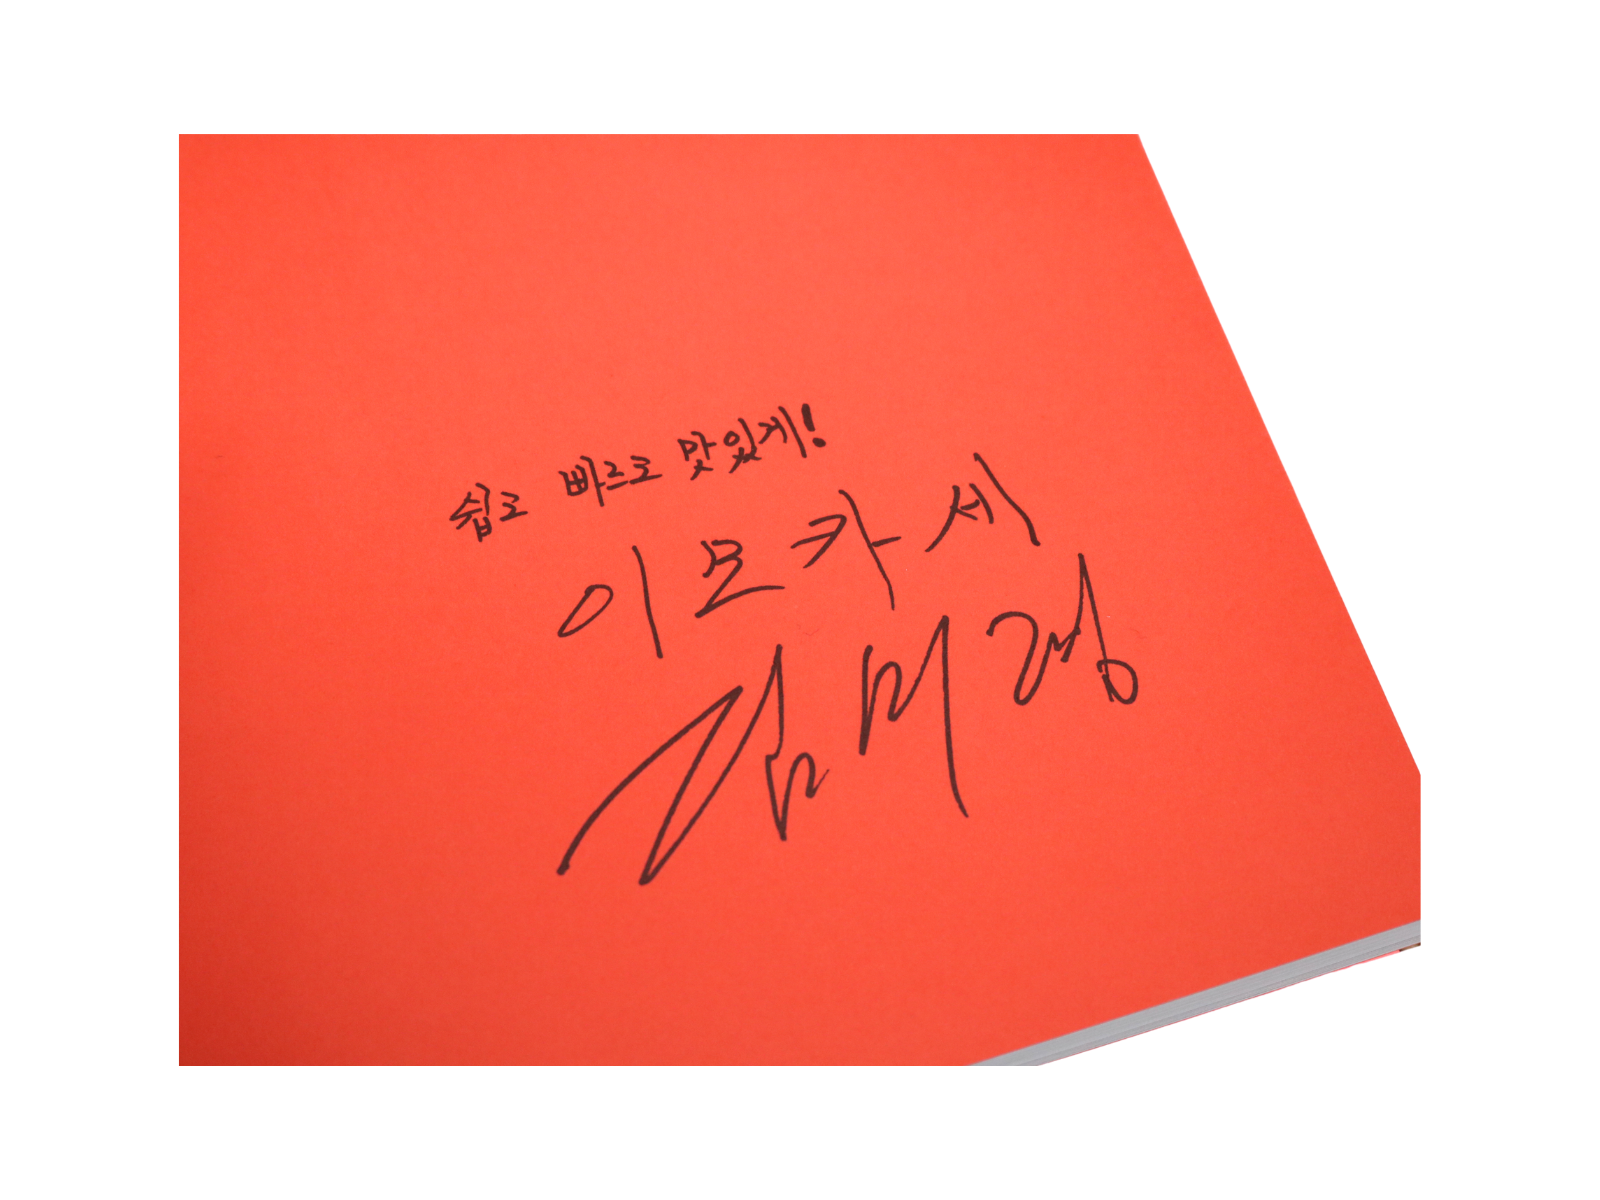 쉽고 빠르고 맛있게!
이모카세
김미령